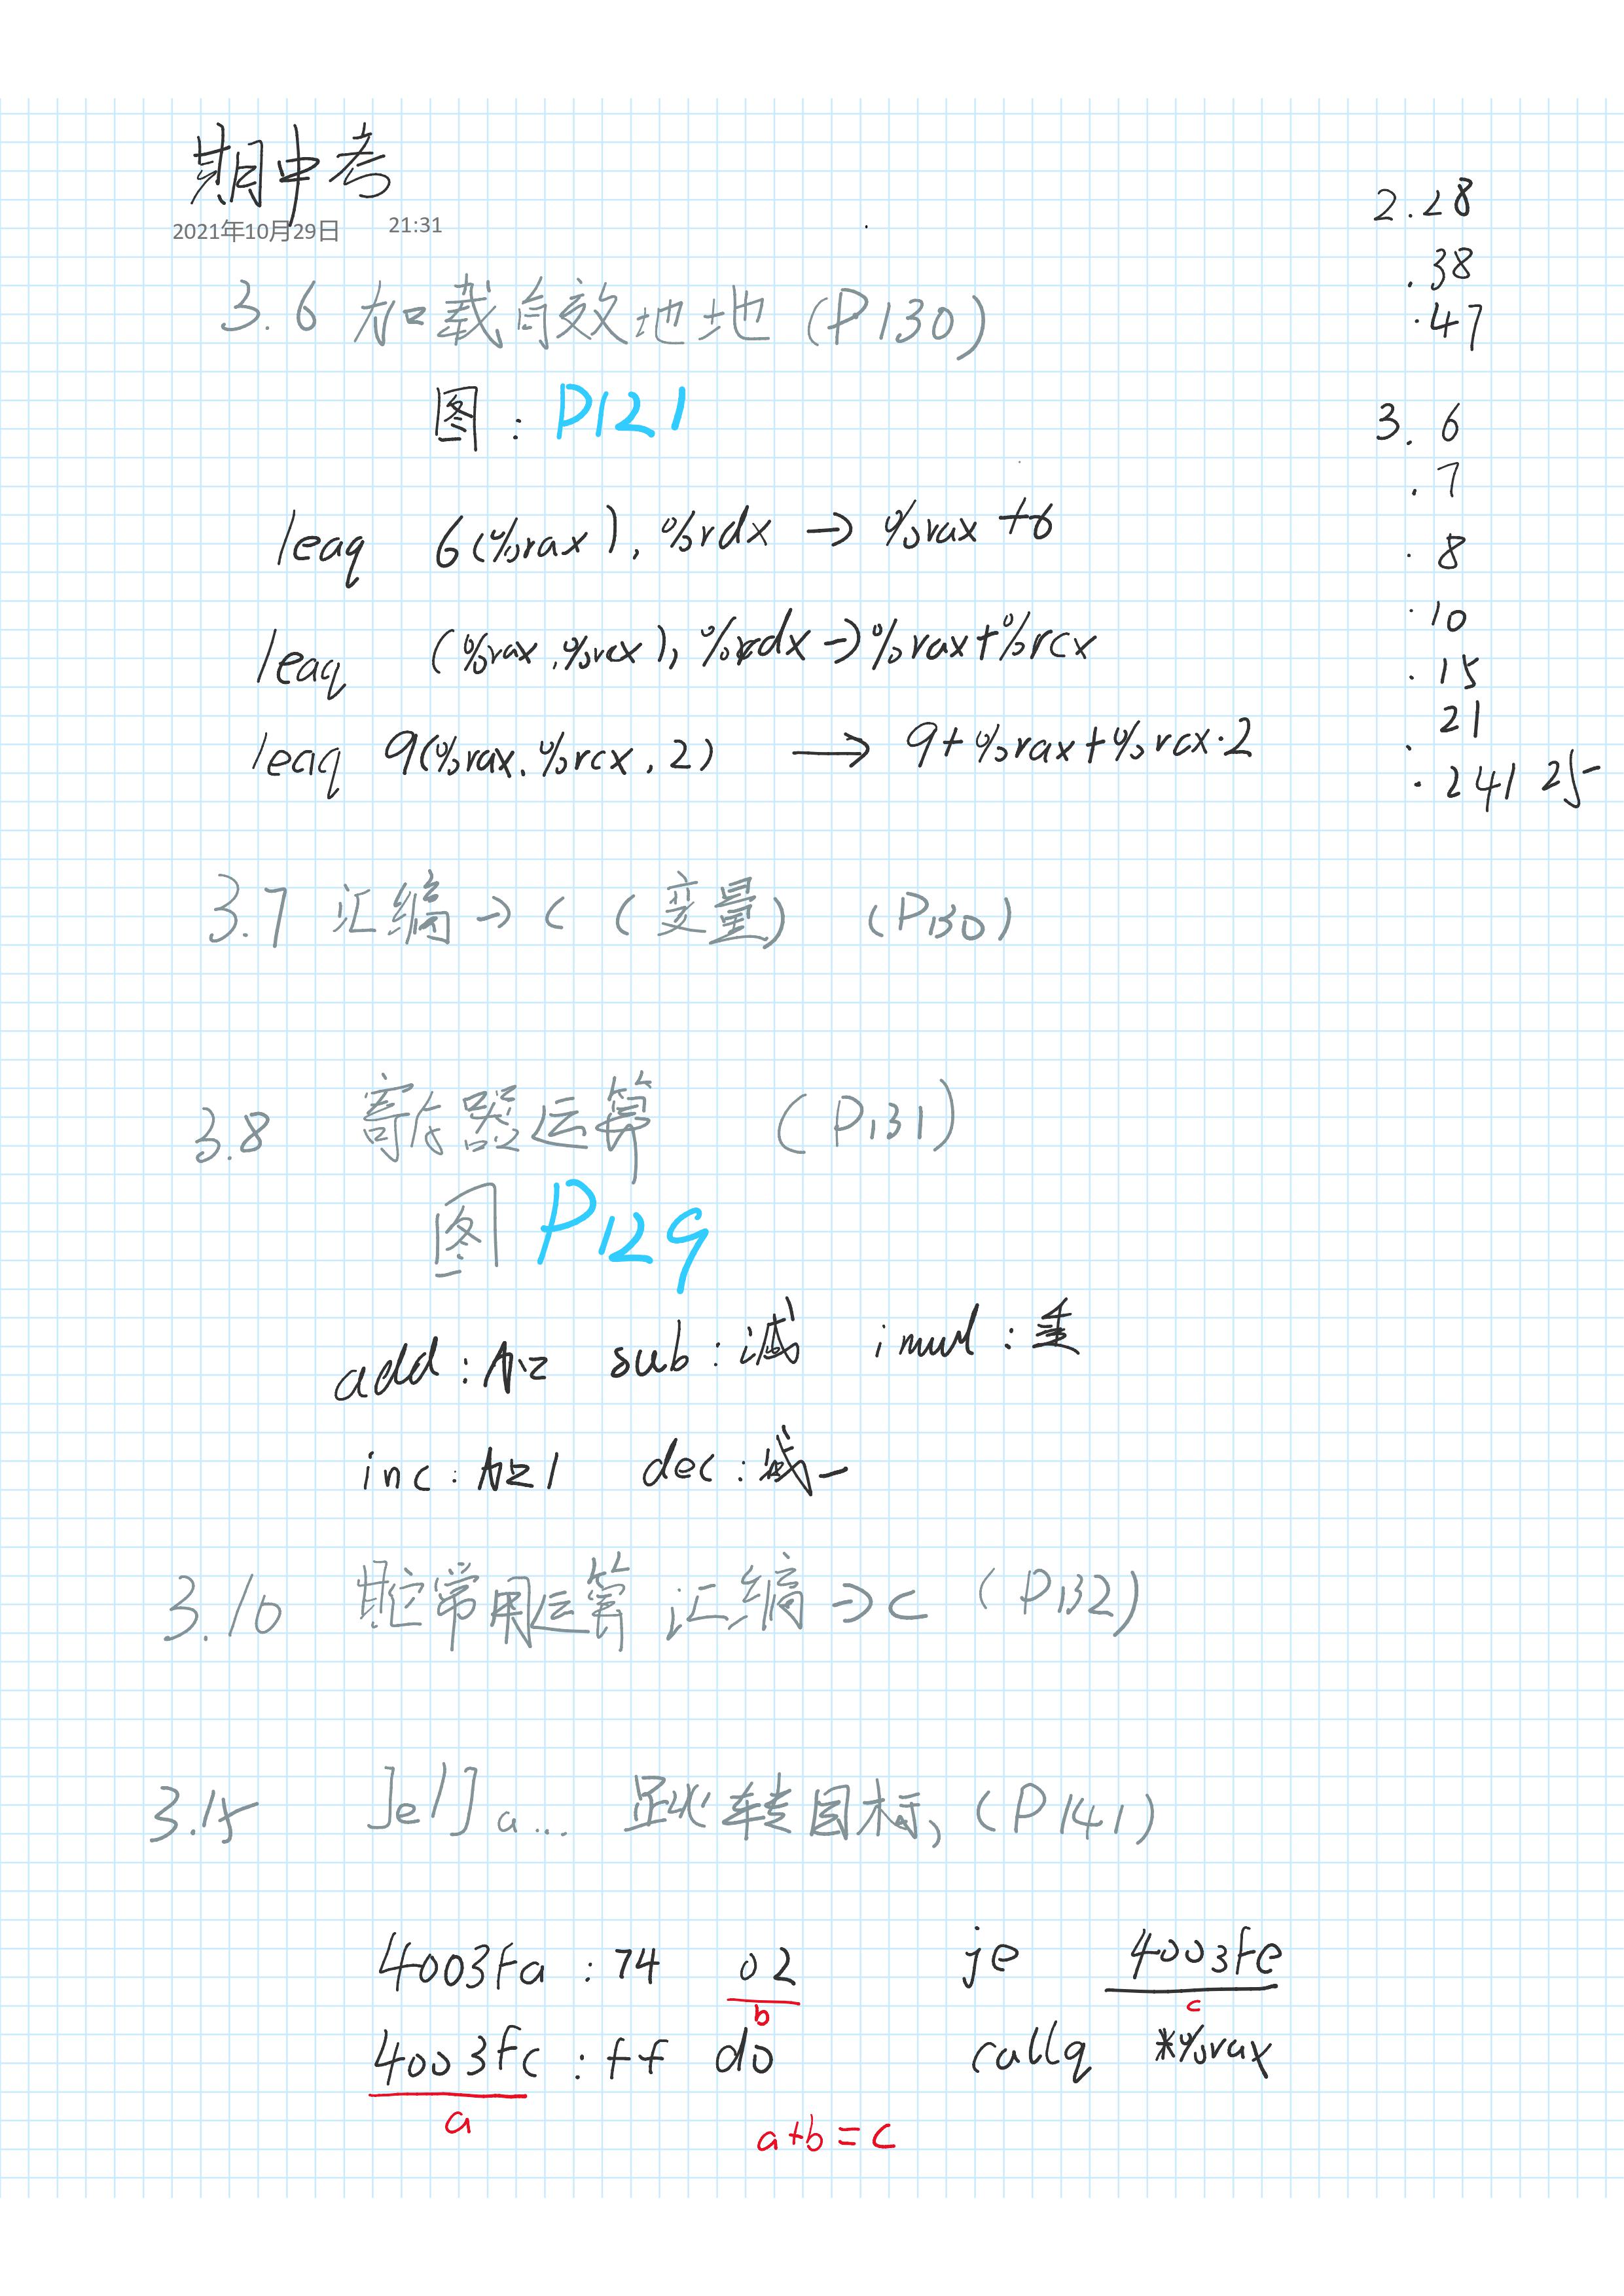 期中考
2021年10月29日 21:31
3.6 加载有效地地 (P130)
图: P121
leaq 6(%rax), %rdx → %rax+6
leaq (%rax,%rcx), %rdx → %rax+%rcx
leaq 9(%rax,%rcx,2) → 9+%rax+%rcx·2
3.7 汇编→C (变量) (P130)
3.8 寄存器运算 (P131)
图 P129
add:加 sub:减 imul:乘
inc:加1 dec:减一
3.10 常用运算 汇编→C (P132)
3.15 Je/Ja... 跳转目标, (P141)
4003fa :74 02 je 4003fe
b c
4003fc :ff d0 callq *%rax
a
a+b=c
2.28
.38
.47
3.6
.7
.8
.10
.15
.21
.241 25